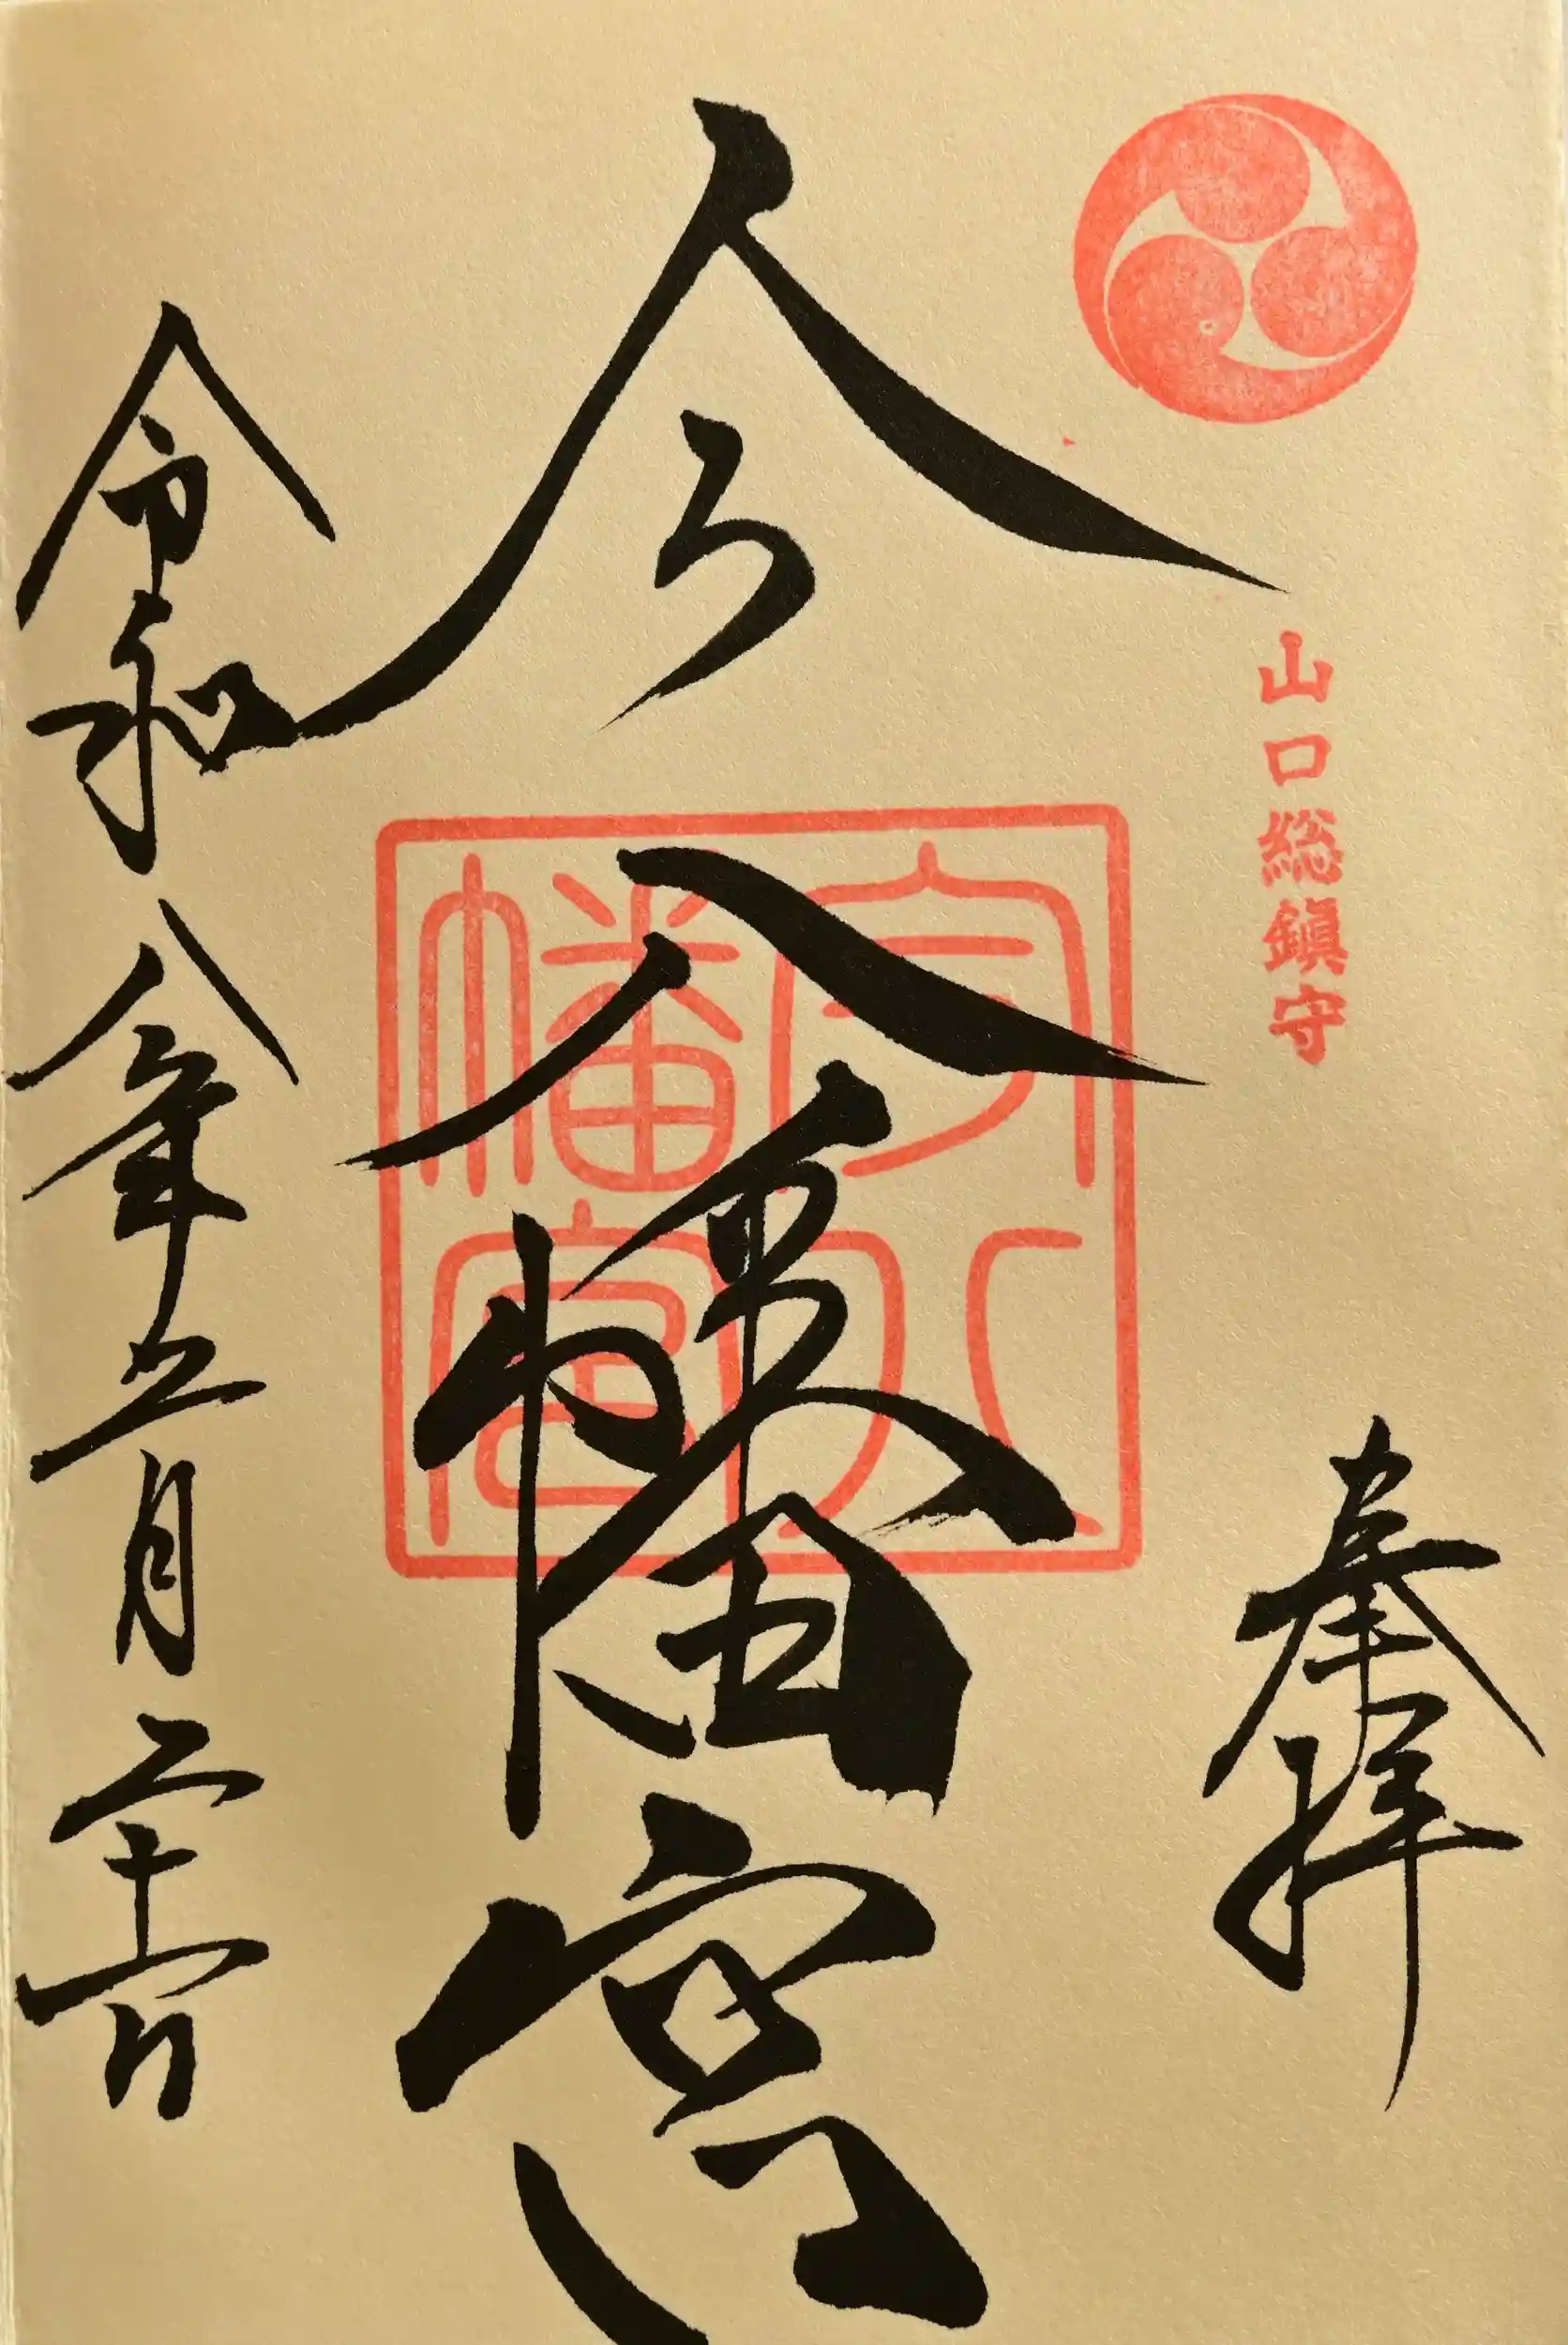 山口総鎭守
奉拝
今八幡宮
今八幡宮
令和八年五月二十一日